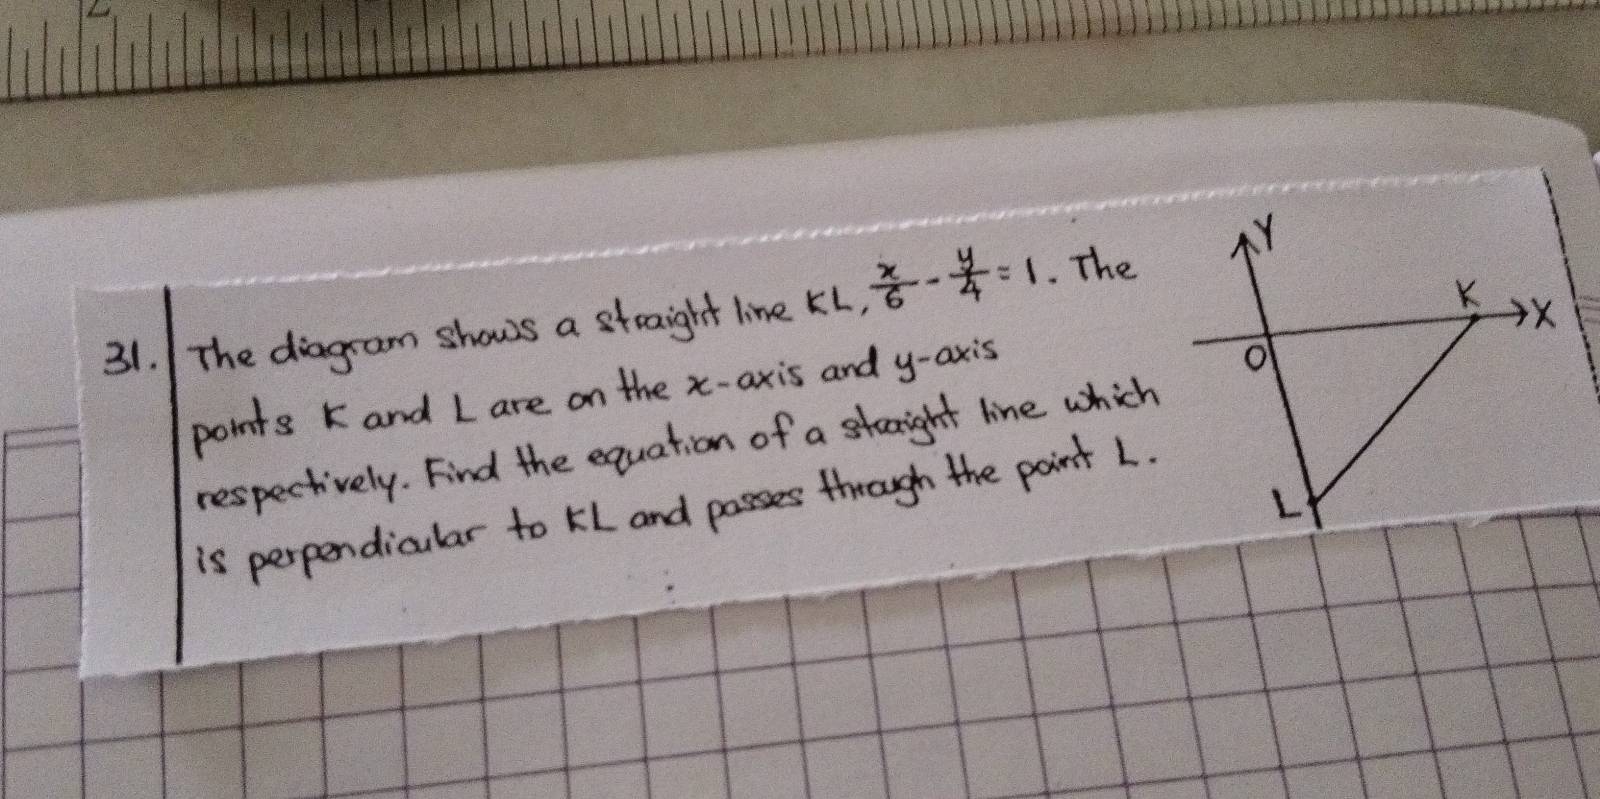 2
31. The diagram shows a straight line KL, x/6 - y/4 = 1. The
points K and L are on the x-axis and y-axis
respectively. Find the equation of a straight line which
is perpendicular to KL and passes through the point L.
Y
K
X
O
L